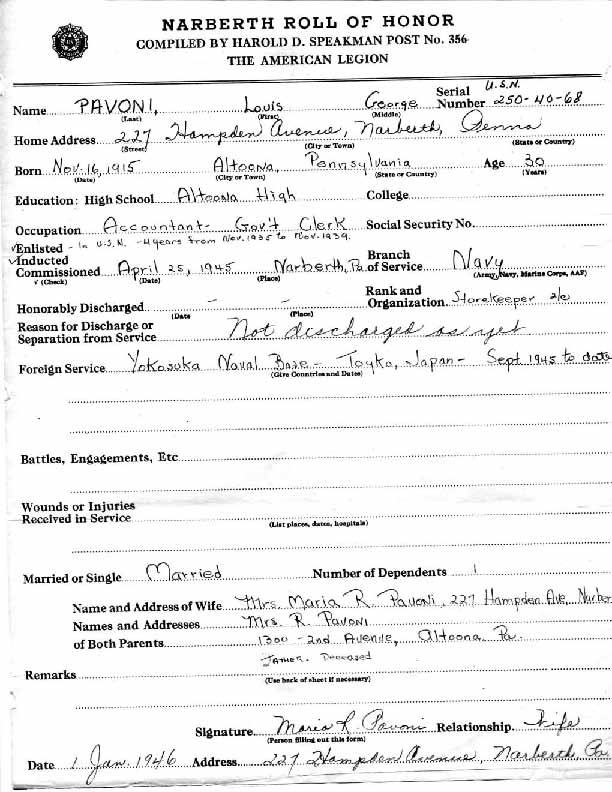 NARBERTH ROLL OF HONOR
COMPILED BY HAROLD D. SPEAKMAN POST No. 356
THE AMERICAN LEGION
Name PAVONI, Louis George Serial Number U.S.N. 250-40-68
(Last) (First) (Middle)
Home Address 227 Hampden Avenue, Narberth, Penna
(Street) (City or Town) (State or Country)
Born Nov. 16, 1915 Altoona, Pennsylvania Age 30
(Date) (City or Town) (State or Country) (Years)
Education: High School Altoona High College
Occupation Accountant - Gov't Clerk Social Security No.
✓Enlisted - In U.S.N. - 4 years from Nov. 1935 to Nov. 1939.
✓Inducted
Commissioned April 25, 1945 Narberth, Pa. Branch of Service Navy
✓ (Check) (Date) (Place) (Army, Navy, Marine Corps, AAF)
Honorably Discharged - - Rank and Organization Storekeeper 2/c
(Date (Place)
Reason for Discharge or
Separation from Service Not discharged as yet
Foreign Service Yokosuka Naval Base - Toyko, Japan - Sept 1945 to date
(Give Countries and Dates)
Battles, Engagements, Etc
Wounds or Injuries
Received in Service
(List places, dates, hospitals)
Married or Single Married Number of Dependents 1
Name and Address of Wife Mrs. Maria R. Pavoni, 227 Hampden Ave, Narber
Names and Addresses Mrs. R. Pavoni
of Both Parents 1300 - 2nd Avenue, Altoona Pa.
Father. Deceased
Remarks
(Use back of sheet if necessary)
Signature Maria R Pavoni Relationship Wife
(Person filling out this form)
Date 1 Jan. 1946 Address 227 Hampden Avenue, Narberth, Pa